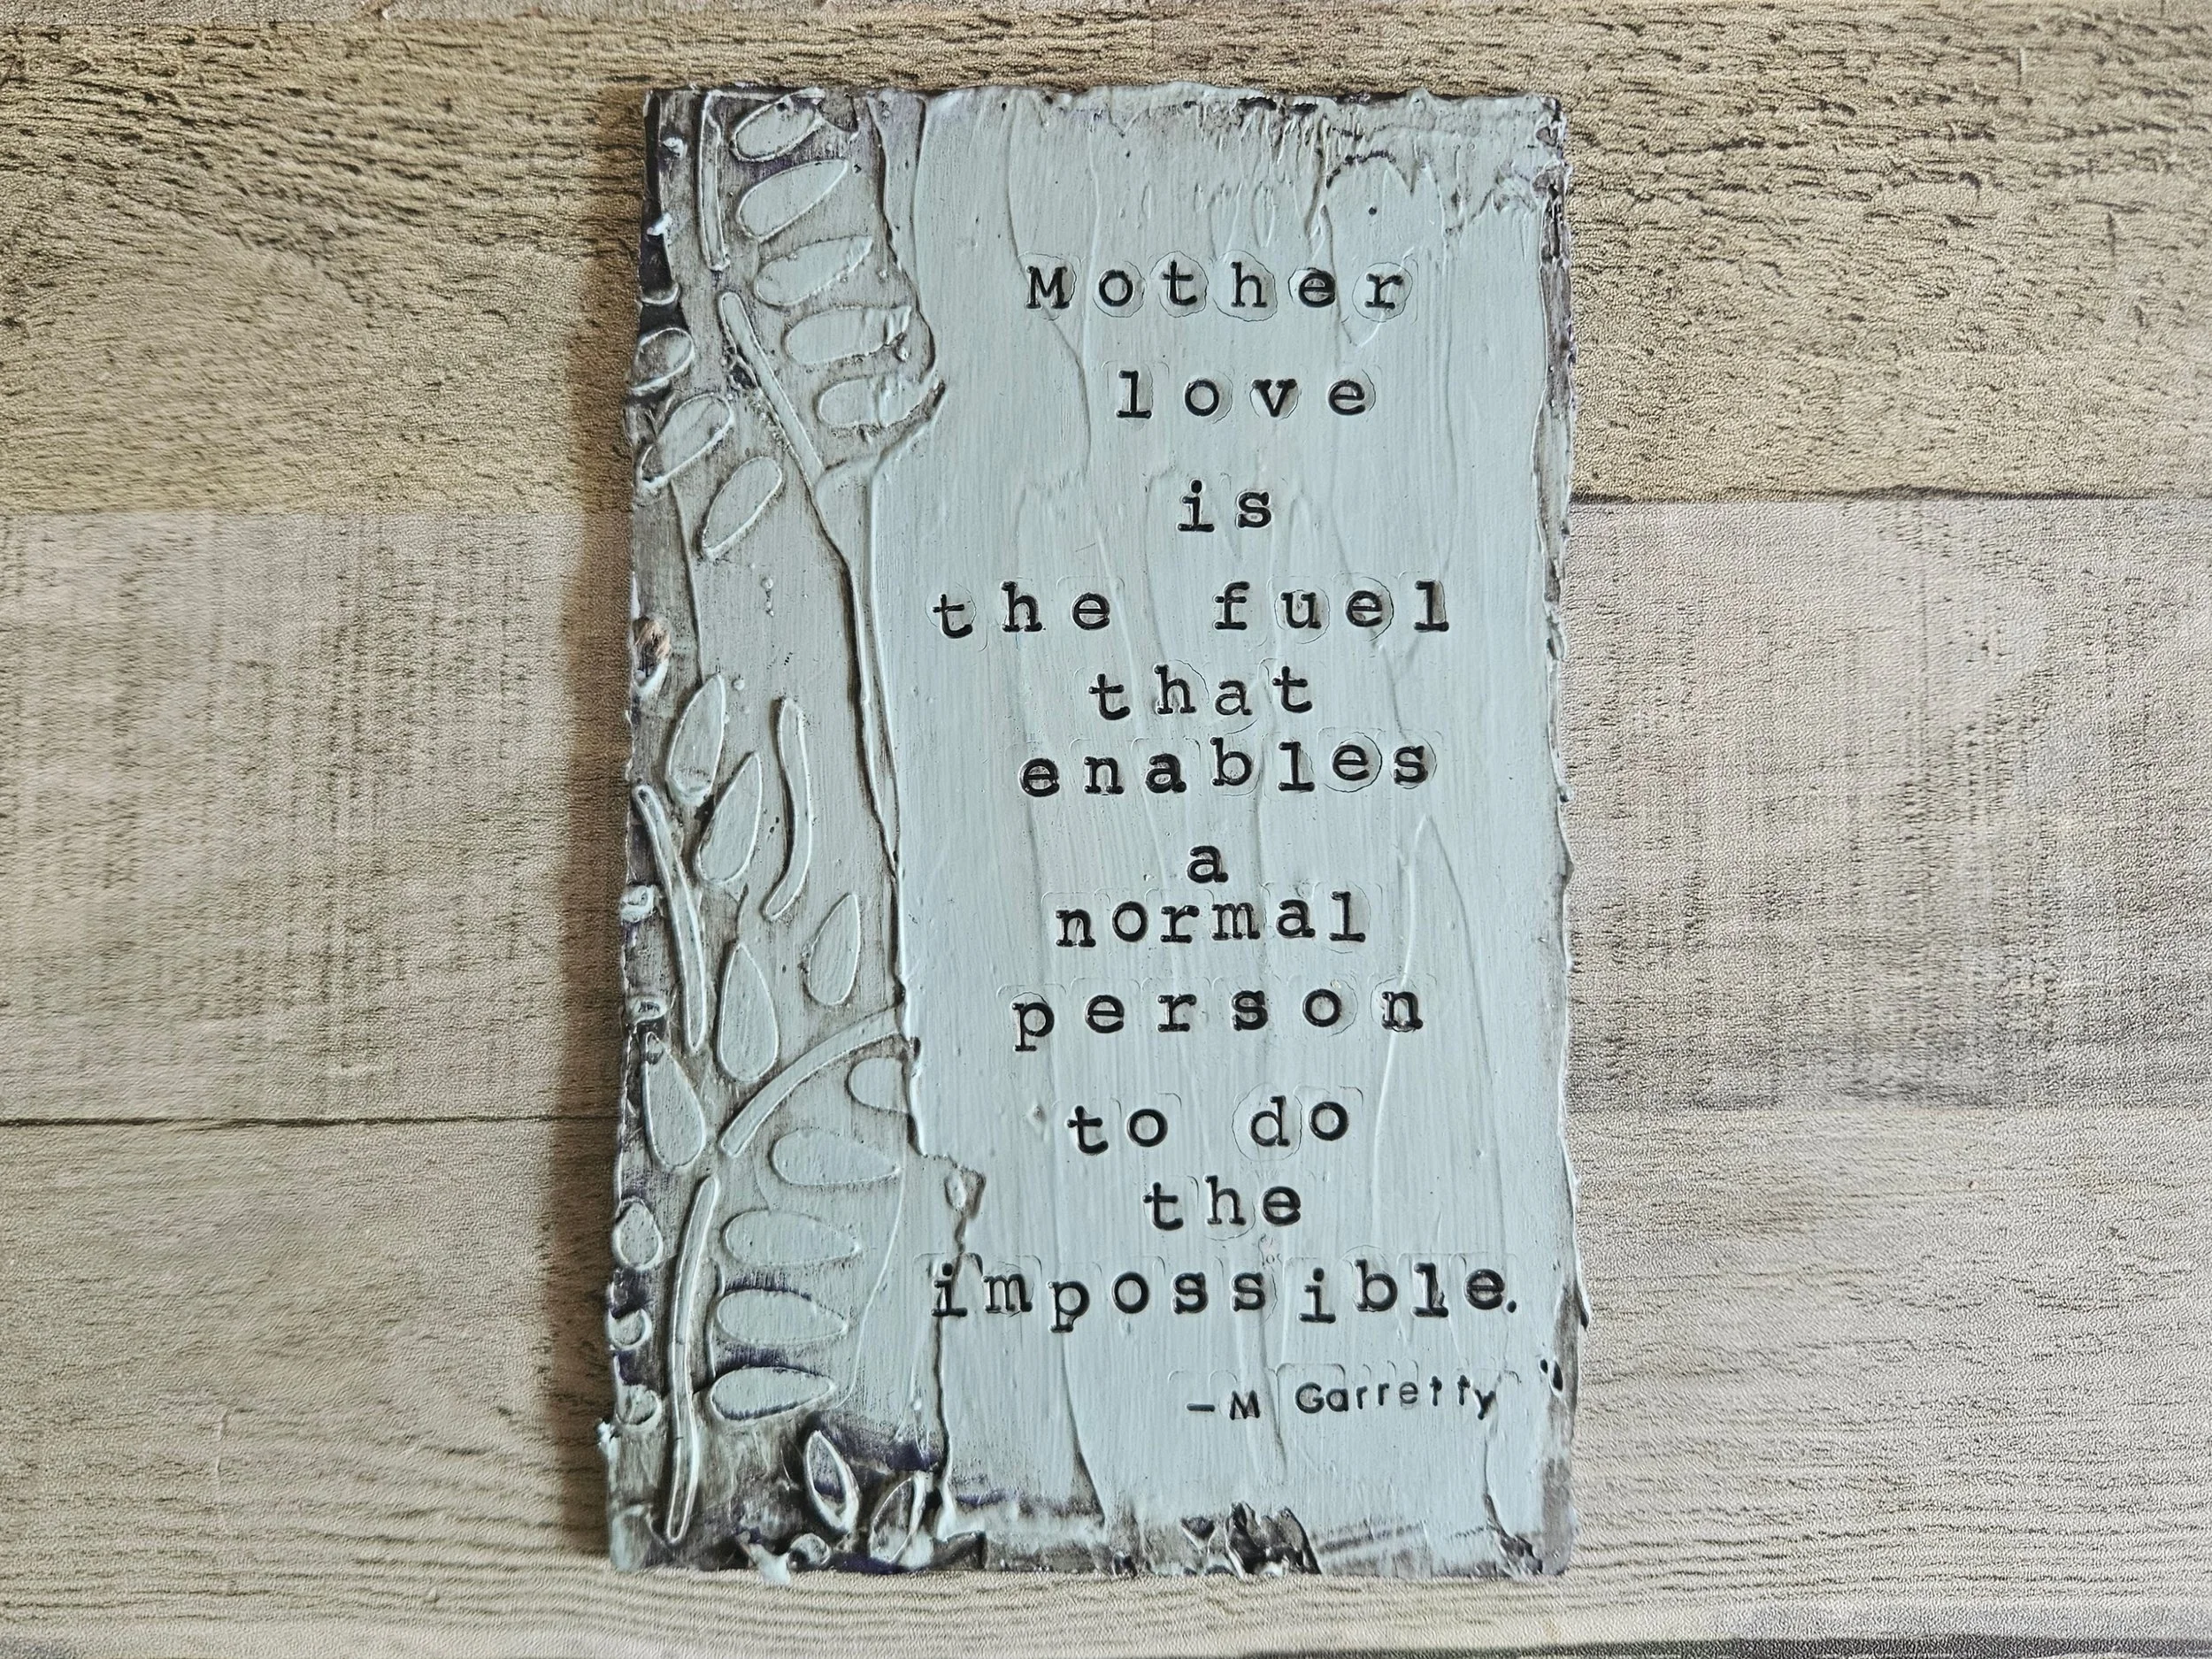 Mother
love
is
the fuel
that
enables
a
normal
person
to do
the
impossible.
-M Garretty